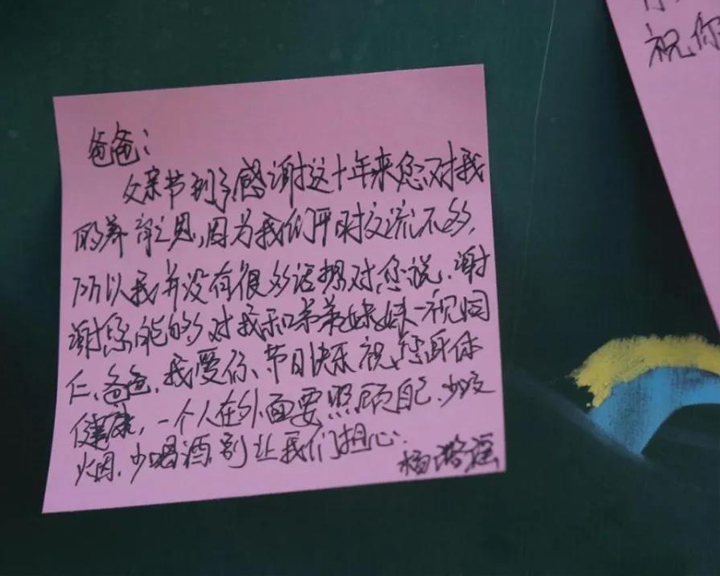 爸爸：
父亲节到了感谢这十年来您对我
的养育之恩，因为我们平时交流不够，
所以我并没有很多话想对您说．谢
谢您能够对我和弟弟妹妹一视同
仁、爸爸，我爱你、节日快乐祝您身体
健康，一个人在外面要照顾自己．少政
烟．少喝酒别让我们担心．
杨
祝你